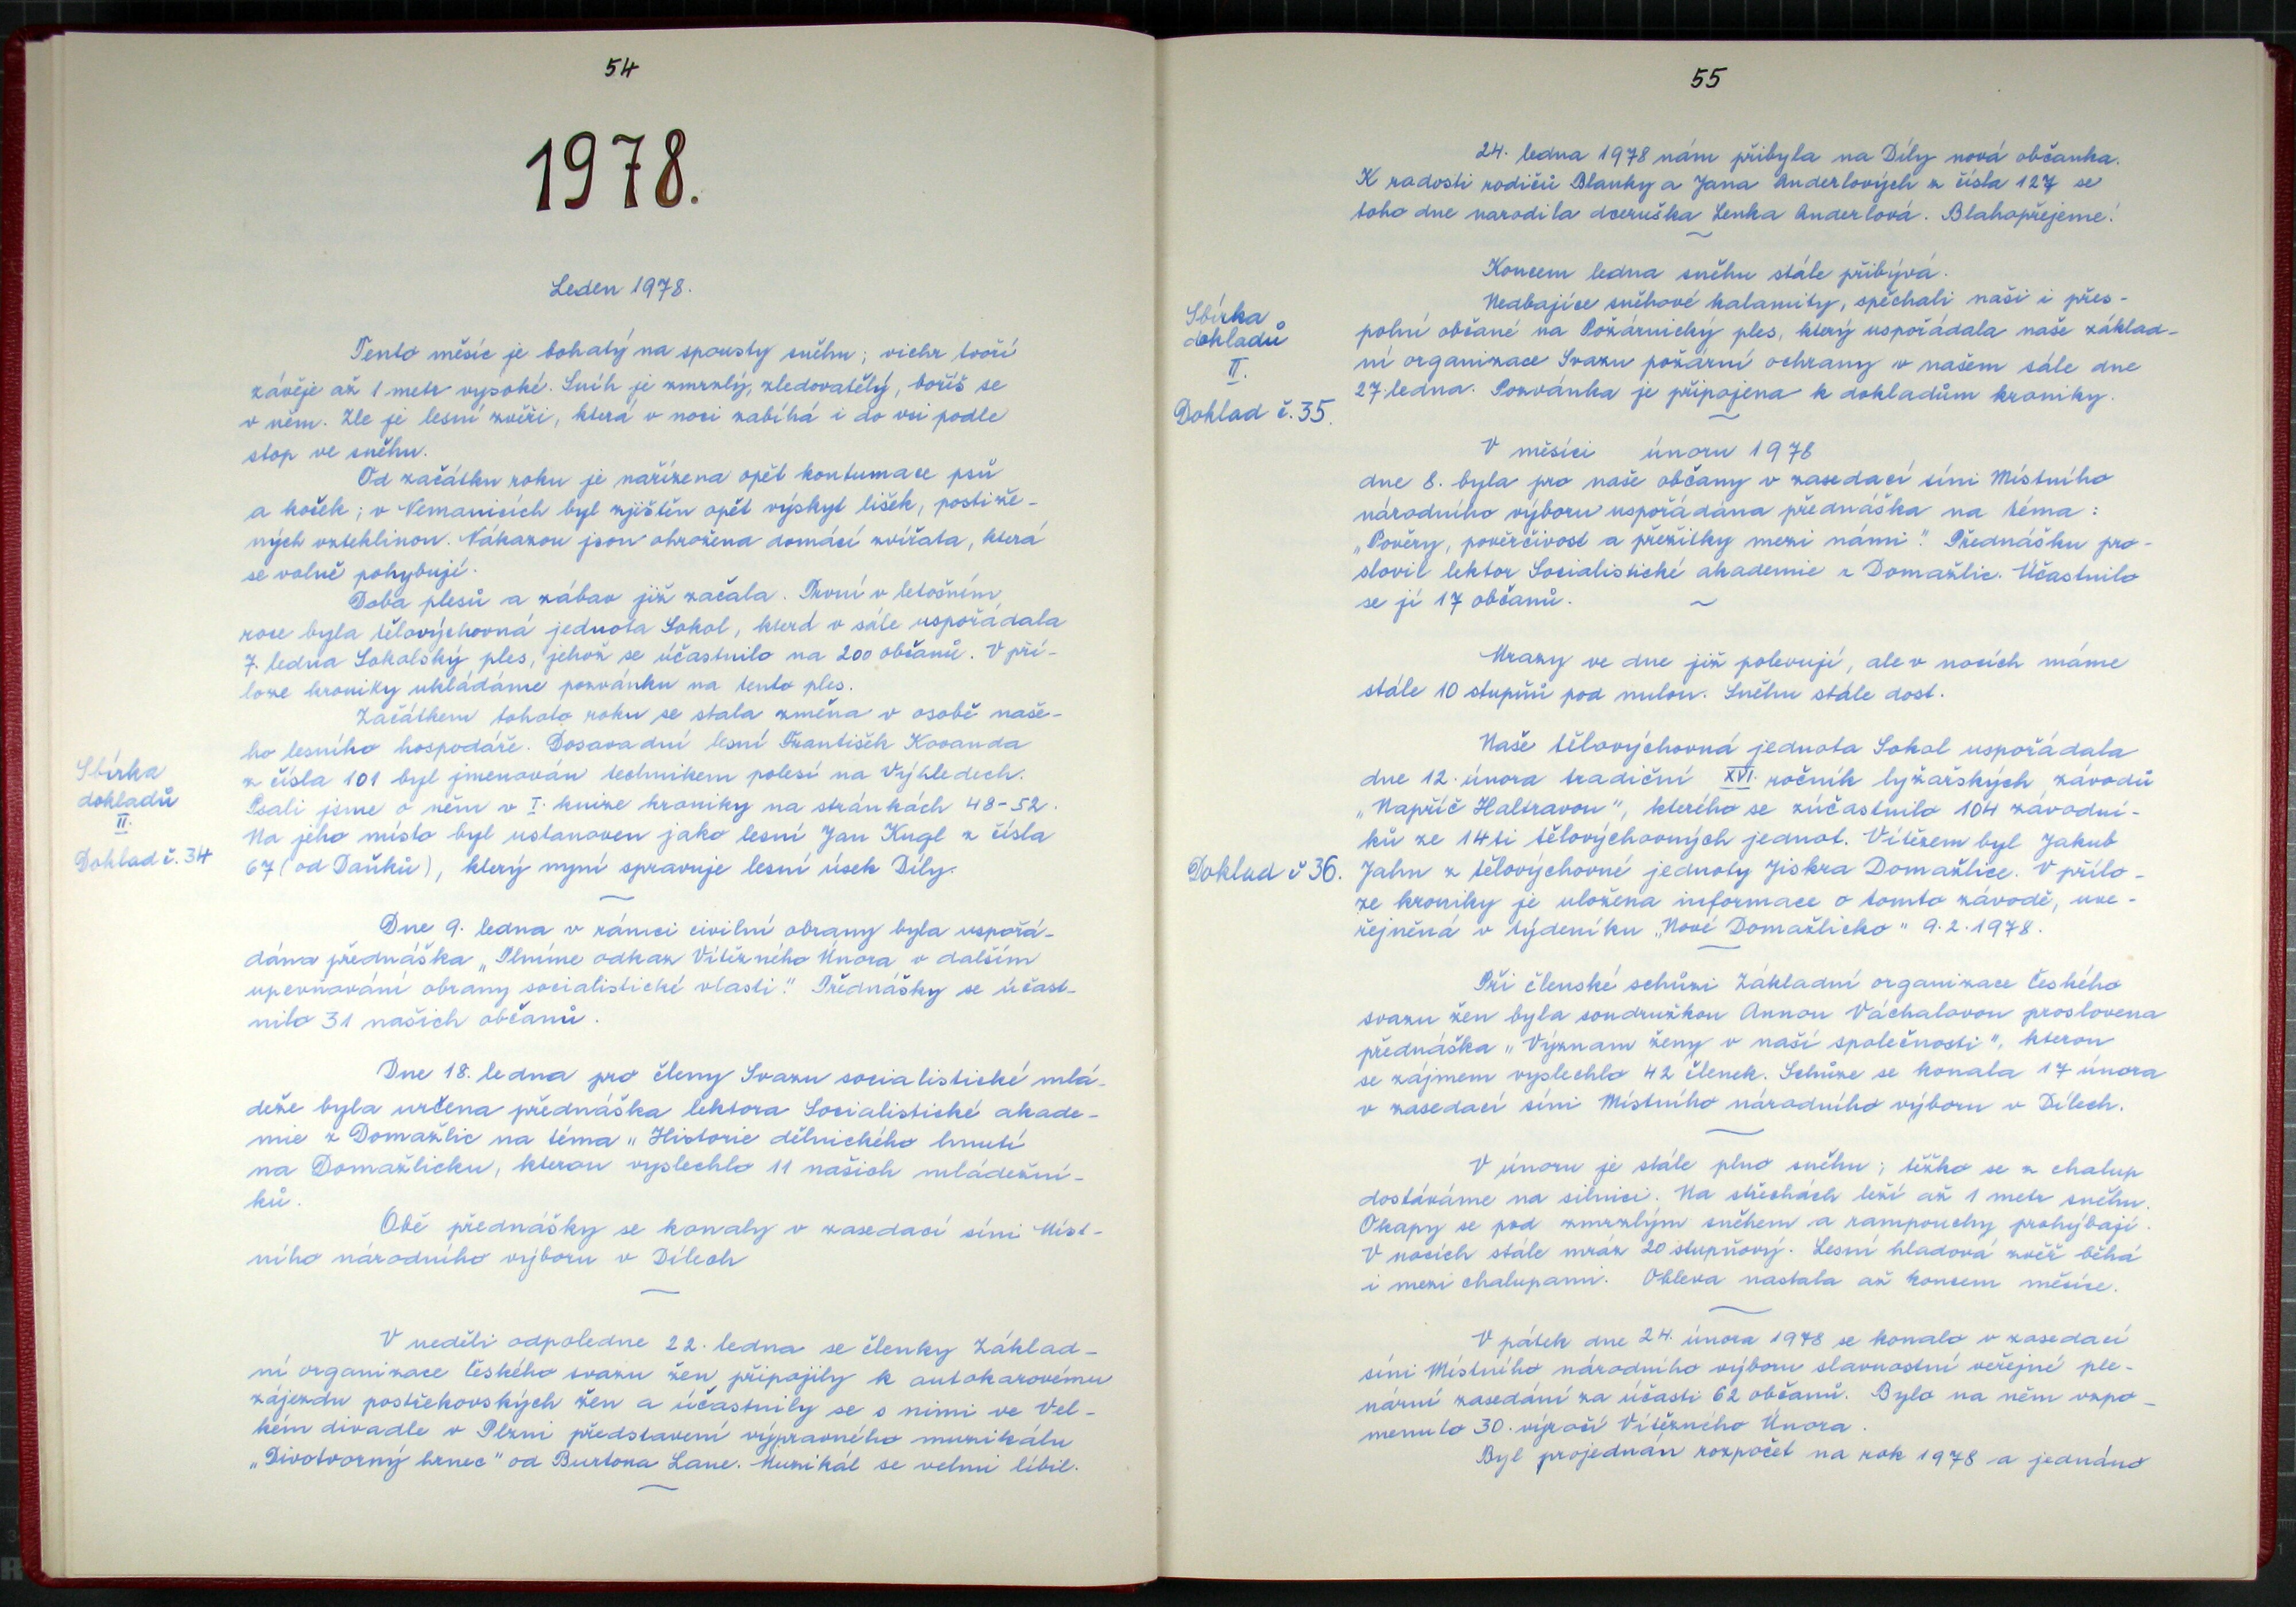 54
1978.
Leden 1978.
Tento měsíc je bohatý na spousty sněhu; vichr tvoří
závěje až 1 metr vysoké. Sníh je zmrzlý, zledovatělý, boříš se
v něm. Zle je lesní zvěři, která v noci zabíhá i do vsi podle
stop ve sněhu.
Od začátku roku je nařízena opět kontumace psů
a koček; v Nemanicích byl zjištěn opět výskyt lišek, postiže-
ných vzteklinou. Nákazou jsou ohrožena domácí zvířata, která
se volně pohybují.
Doba plesů a zábav již začala. První v letošním
roce byla tělovýchovná jednota Sokol, která v sále uspořádala
7. ledna Sokolský ples, jehož se účastnilo na 200 občanů. V pří-
loze kroniky ukládáme pozvánku na tento ples.
Začátkem tohoto roku se stala změna v osobě naše-
ho lesního hospodáře. Dosavadní lesní František Kovanda
z čísla 101 byl jmenován technikem polesí na Výhledech.
Psali jsme o něm v I. knize kroniky na stránkách 48-52.
Na jeho místo byl ustanoven jako lesní Jan Kugl z čísla
67 (od Daňků), který nyní spravuje lesní úsek Díly.
Sbírka
dokladů
II.
Doklad č. 34
Dne 9. ledna v rámci civilní obrany byla uspořá-
dána přednáška „Plníme odkaz Vítězného Února v dalším
upevňování obrany socialistické vlasti." Přednášky se účast-
nilo 31 našich občanů.
Dne 18. ledna pro členy Svazu socialistické mlá-
deže byla určena přednáška lektora Socialistické akade-
mie z Domažlic na téma „Historie dělnického hnutí
na Domažlicku, kterou vyslechlo 11 našich mládežní-
ků.
Obě přednášky se konaly v zasedací síni Míst-
ního národního výboru v Dílech
V neděli odpoledne 22. ledna se členky Základ-
ní organizace Českého svazu žen připojily k autokarovému
zájezdu postřekovských žen a účastnily se s nimi ve Vel-
kém divadle v Plzni představení výpravného muzikálu
„Divotvorný hrnec" od Burtona Lane. Muzikál se velmi líbil.
55
24. ledna 1978 nám přibyla na Díly nová občanka.
K radosti rodičů Blanky a Jana Anderlových z čísla 127 se
toho dne narodila dceruška Lenka Anderlová. Blahopřejeme!
Koncem ledna sněhu stále přibývá.
Nedbajíce sněhové kalamity, spěchali naši i přes-
polní občané na Požárnický ples, který uspořádala naše základ-
ní organizace Svazu požární ochrany v našem sále dne
27 ledna. Pozvánka je připojena k dokladům kroniky.
Sbírka
dokladů
II.
Doklad č. 35.
V měsíci únoru 1978
dne 8. byla pro naše občany v zasedací síni Místního
národního výboru uspořádána přednáška na téma:
„Pověry, pověrčivost a přežitky mezi námi". Přednášku pro-
slovil lektor Socialistické akademie z Domažlic. Účastnilo
se jí 17 občanů.
Mrazy ve dne již polevují, ale v nocích máme
stále 10 stupňů pod nulou. Sněhu stále dost.
Naše tělovýchovná jednota Sokol uspořádala
dne 12. února tradiční XVI. ročník lyžařských závodů
„Napříč Haltravou", kterého se zúčastnilo 104 závodní-
ků ze 14ti tělovýchovných jednot. Vítězem byl Jakub
Jahn z tělovýchovné jednoty Jiskra Domažlice. V přílo-
ze kroniky je uložena informace o tomto závodě, uve-
řejněná v týdeníku „Nové Domažlicko" 9.2.1978.
Doklad č 36.
Při členské schůzi Základní organizace Českého
svazu žen byla soudružkou Annou Váchalovou proslovena
přednáška „Význam ženy v naší společnosti", kterou
se zájmem vyslechlo 42 členek. Schůze se konala 17 února
v zasedací síni Místního národního výboru v Dílech.
V únoru je stále plno sněhu; těžko se z chalup
dostáváme na silnici. Na střechách leží až 1 metr sněhu.
Okapy se pod zmrzlým sněhem a rampouchy prohýbají.
V nocích stále mráz 20 stupňový. Lesní hladová zvěř běhá
i mezi chalupami. Obleva nastala až koncem měsíce.
V pátek dne 24. února 1978 se konalo v zasedací
síni Místního národního výboru slavnostní veřejné ple-
nární zasedání za účasti 62 občanů. Bylo na něm vzpo-
menuto 30. výročí Vítězného Února.
Byl projednán rozpočet na rok 1978 a jednáno